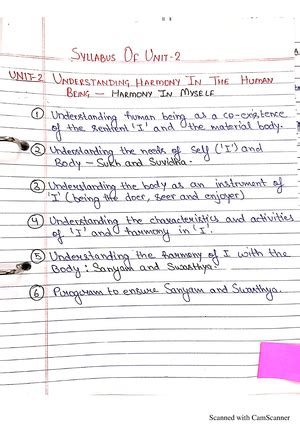 SYLLABUS OF UNIT-2
UNIT-2 UNDERSTANDING HARMONY IN THE HUMAN
BEING – HARMONY IN MYSELF
① Understanding human being as a co-existence
of the sentient 'I' and the material body.
② Understanding the needs of self ('I') and
Body – Sukh and Suvidha.
③ Understanding the body as an instrument of
'I' (being the doer, seer and enjoyer)
④ Understanding the characteristics and activities
of 'I' and harmony in 'I'.
⑤ Understanding the harmony of I with the
Body : Sanyam and Swasthya.
⑥ Program to ensure Sanyam and Swasthya.
Scanned with CamScanner